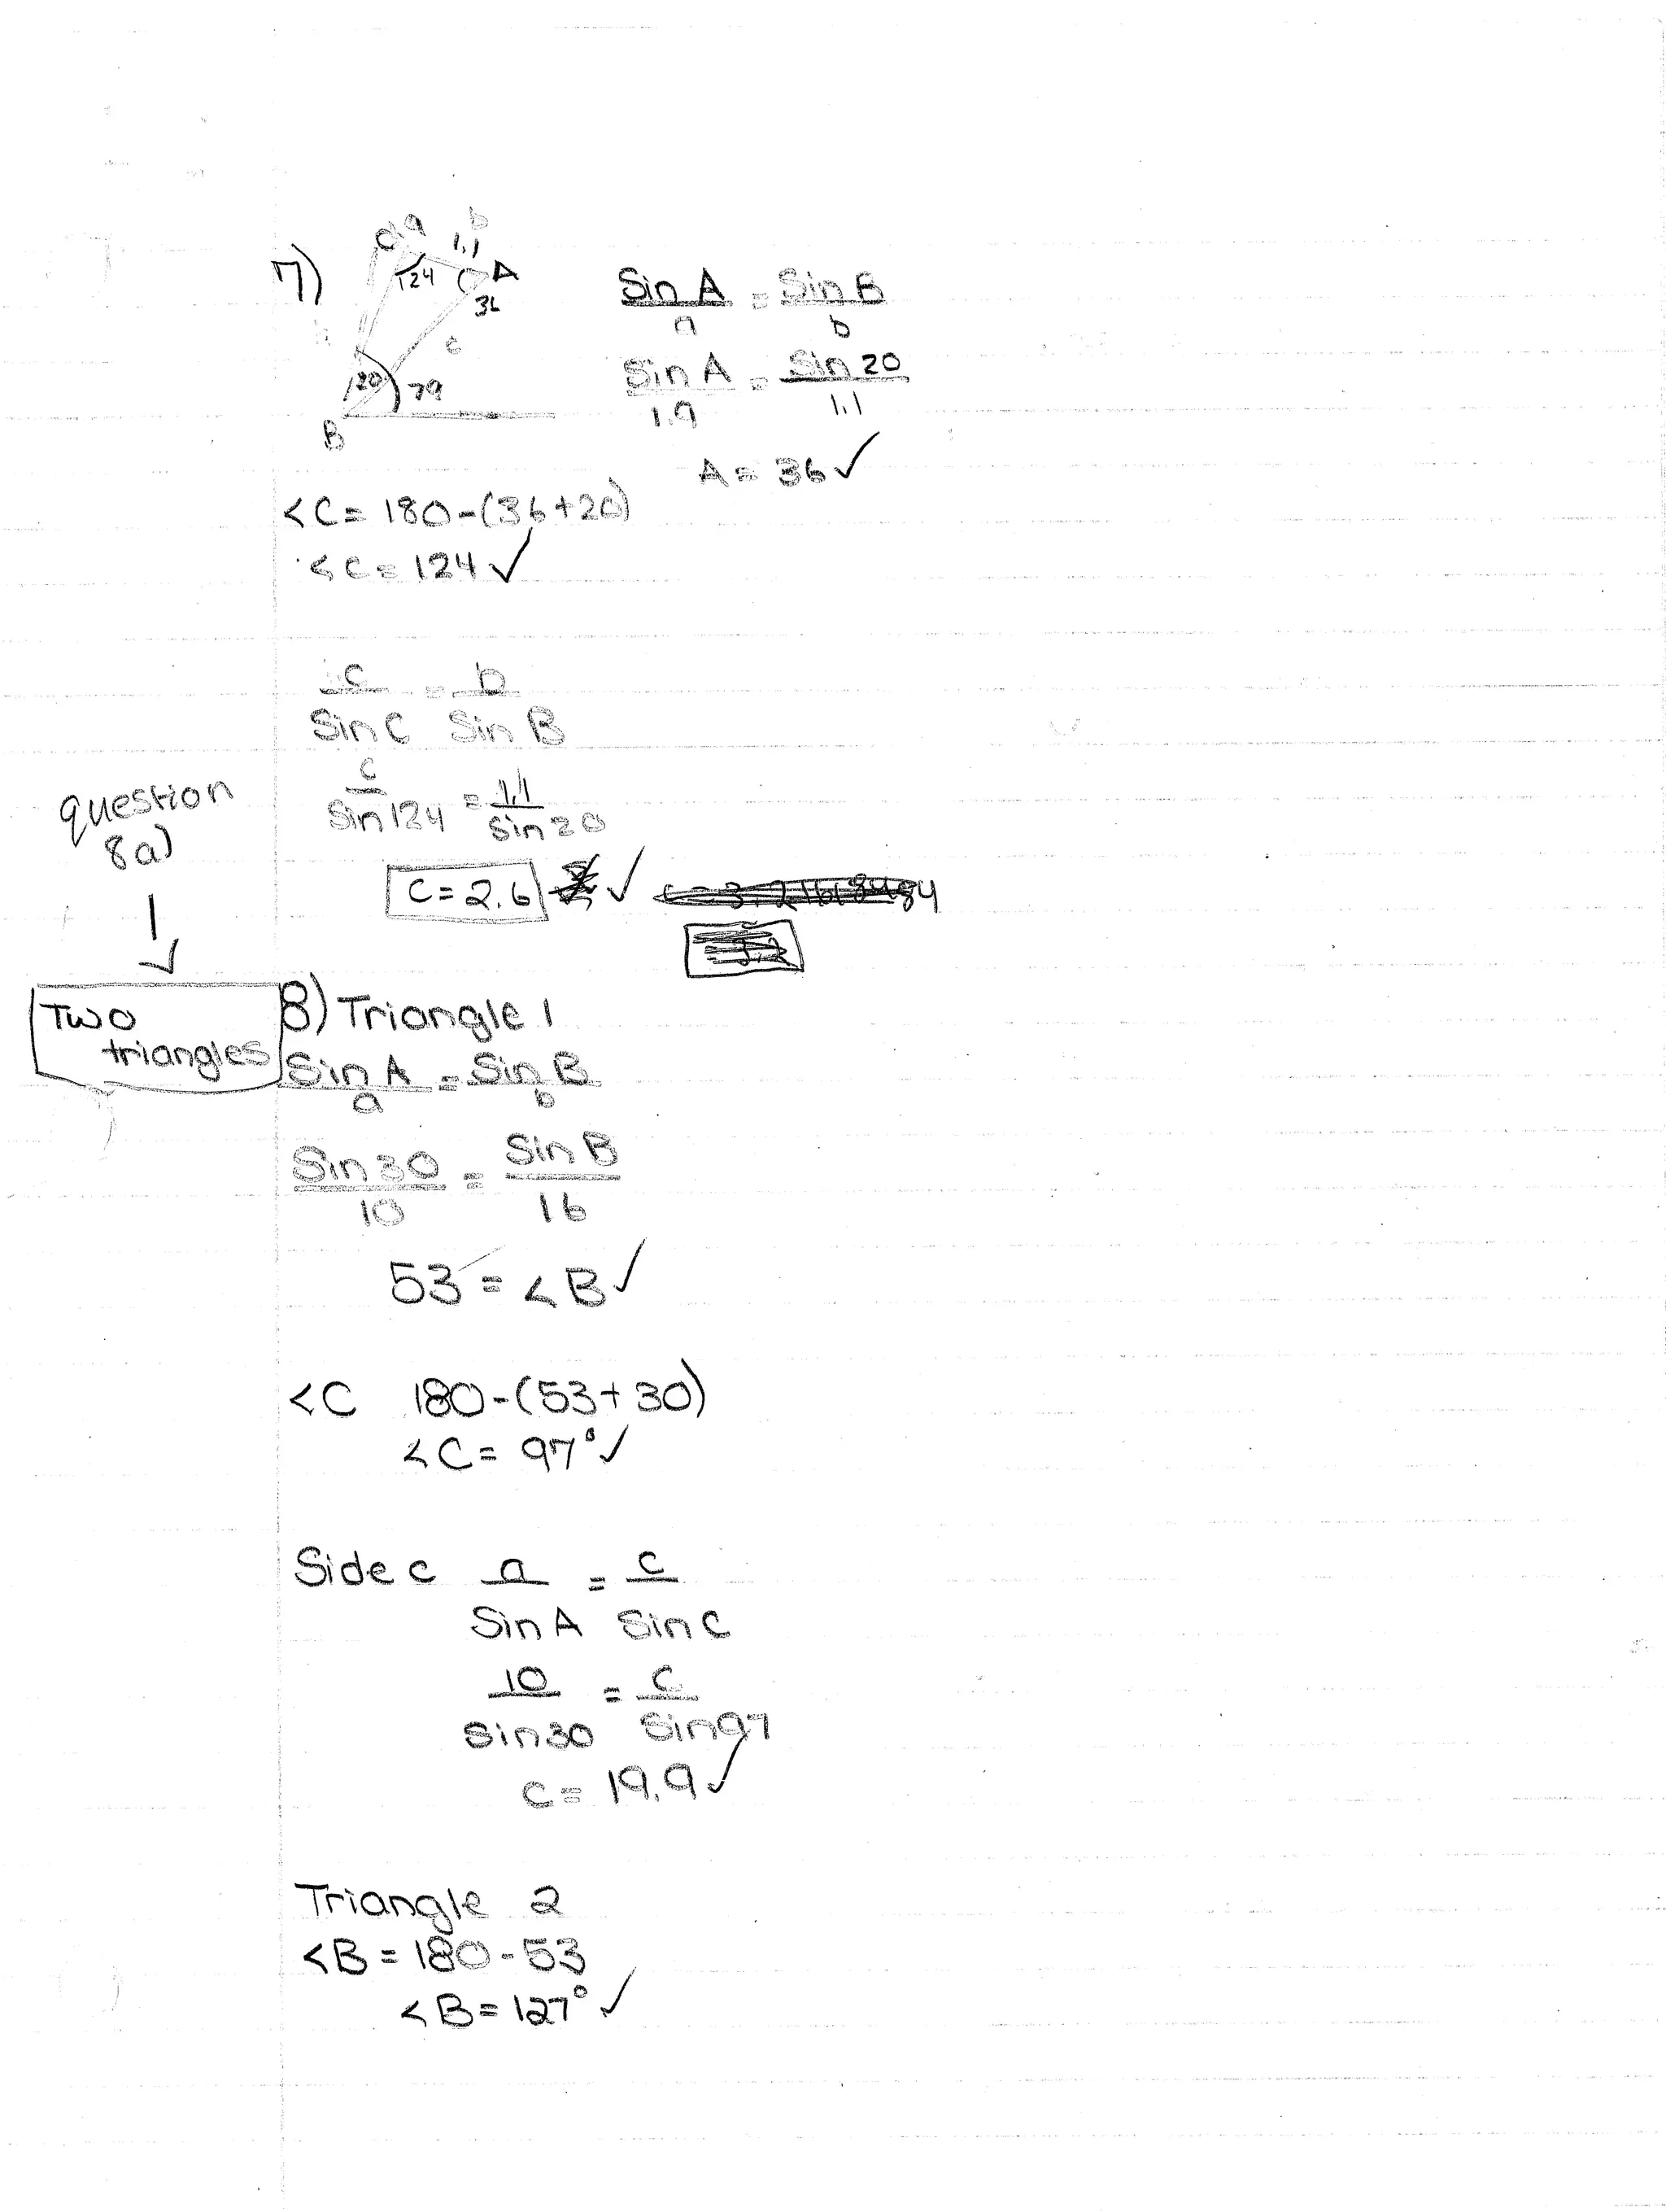 7)
C a b
1.1
124 A
36
c
20 79
B
Sin A = Sin B
a b
Sin A = Sin 20
1.9 1.1
A = 36 ✓
<C = 180-(36+20)
<C = 124 ✓
c = b
Sin C Sin B
c = 1.1
Sin 124 Sin 20
C = 2.6 ✓
question
8a)
Two
triangles
8) Triangle 1
Sin A = Sin B
a b
Sin 30 = Sin B
10 16
53 = <B ✓
<C 180-(53+30)
<C = 97° ✓
Side c a = c
Sin A Sin C
10 = c
Sin 30 Sin 97
C = 19.9 ✓
Triangle 2
<B = 180-53
<B = 127° ✓